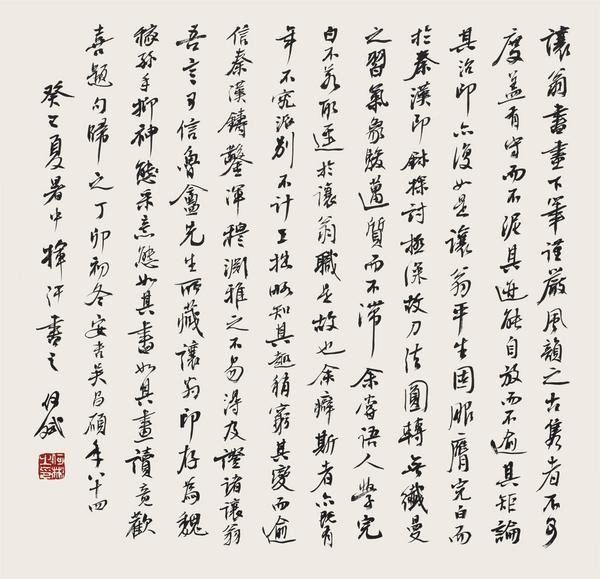 讓翁書畫下筆謹嚴風韻之古雋者不可
度蓋有守而不泥其迹能自放而不逾其矩論
其治印亦復如是讓翁平生固服膺完白而
於秦漢印鉥探討極深故刀法圓轉無纖曼
之習氣象駿邁質而不滯余嘗語人學完
白不若取逕於讓翁職是故也余癖斯者亦既有
年不究派別不計工拙略知其趣稍窮其變而逾
信秦漢鑄鑿渾穆淵雅之不易得及證諸讓翁
吾言可信魯盦先生所藏讓翁印存為魏
稼孫手抑神態采意態如其書如其畫讀竟歡
喜題句歸之丁卯初冬安吉吳昌碩年八十四
癸巳夏暑中揮汗書之